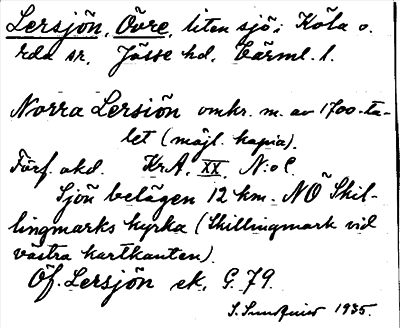 Lersjön, Övre, liten sjö i Köla o.
rda sr, Jösse hd, Värml. l.
Norra Lersiön omkr. m. av 1700-ta-
let (möjl. kopia).
Förf. okd. Kr.A, XX, N:o C.
Sjön belägen 12 km. NÖ Skil-
lingmarks kyrka (Skillingmark vid
västra kartkanten).
Öf. Lersjön ek. G. 79.
1935.